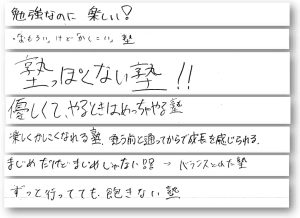 勉強なのに楽しい!
・おもろい。けど「かしこい」塾
塾っぽくない塾!!
優しくて、やるときはめっちゃやる塾
楽しくかしこくなれる塾、通う前と通ってからで成長を感じられる。
まじめだけどまじめじゃない!? → バランスとれた塾
ずっと行ってても飽きない塾